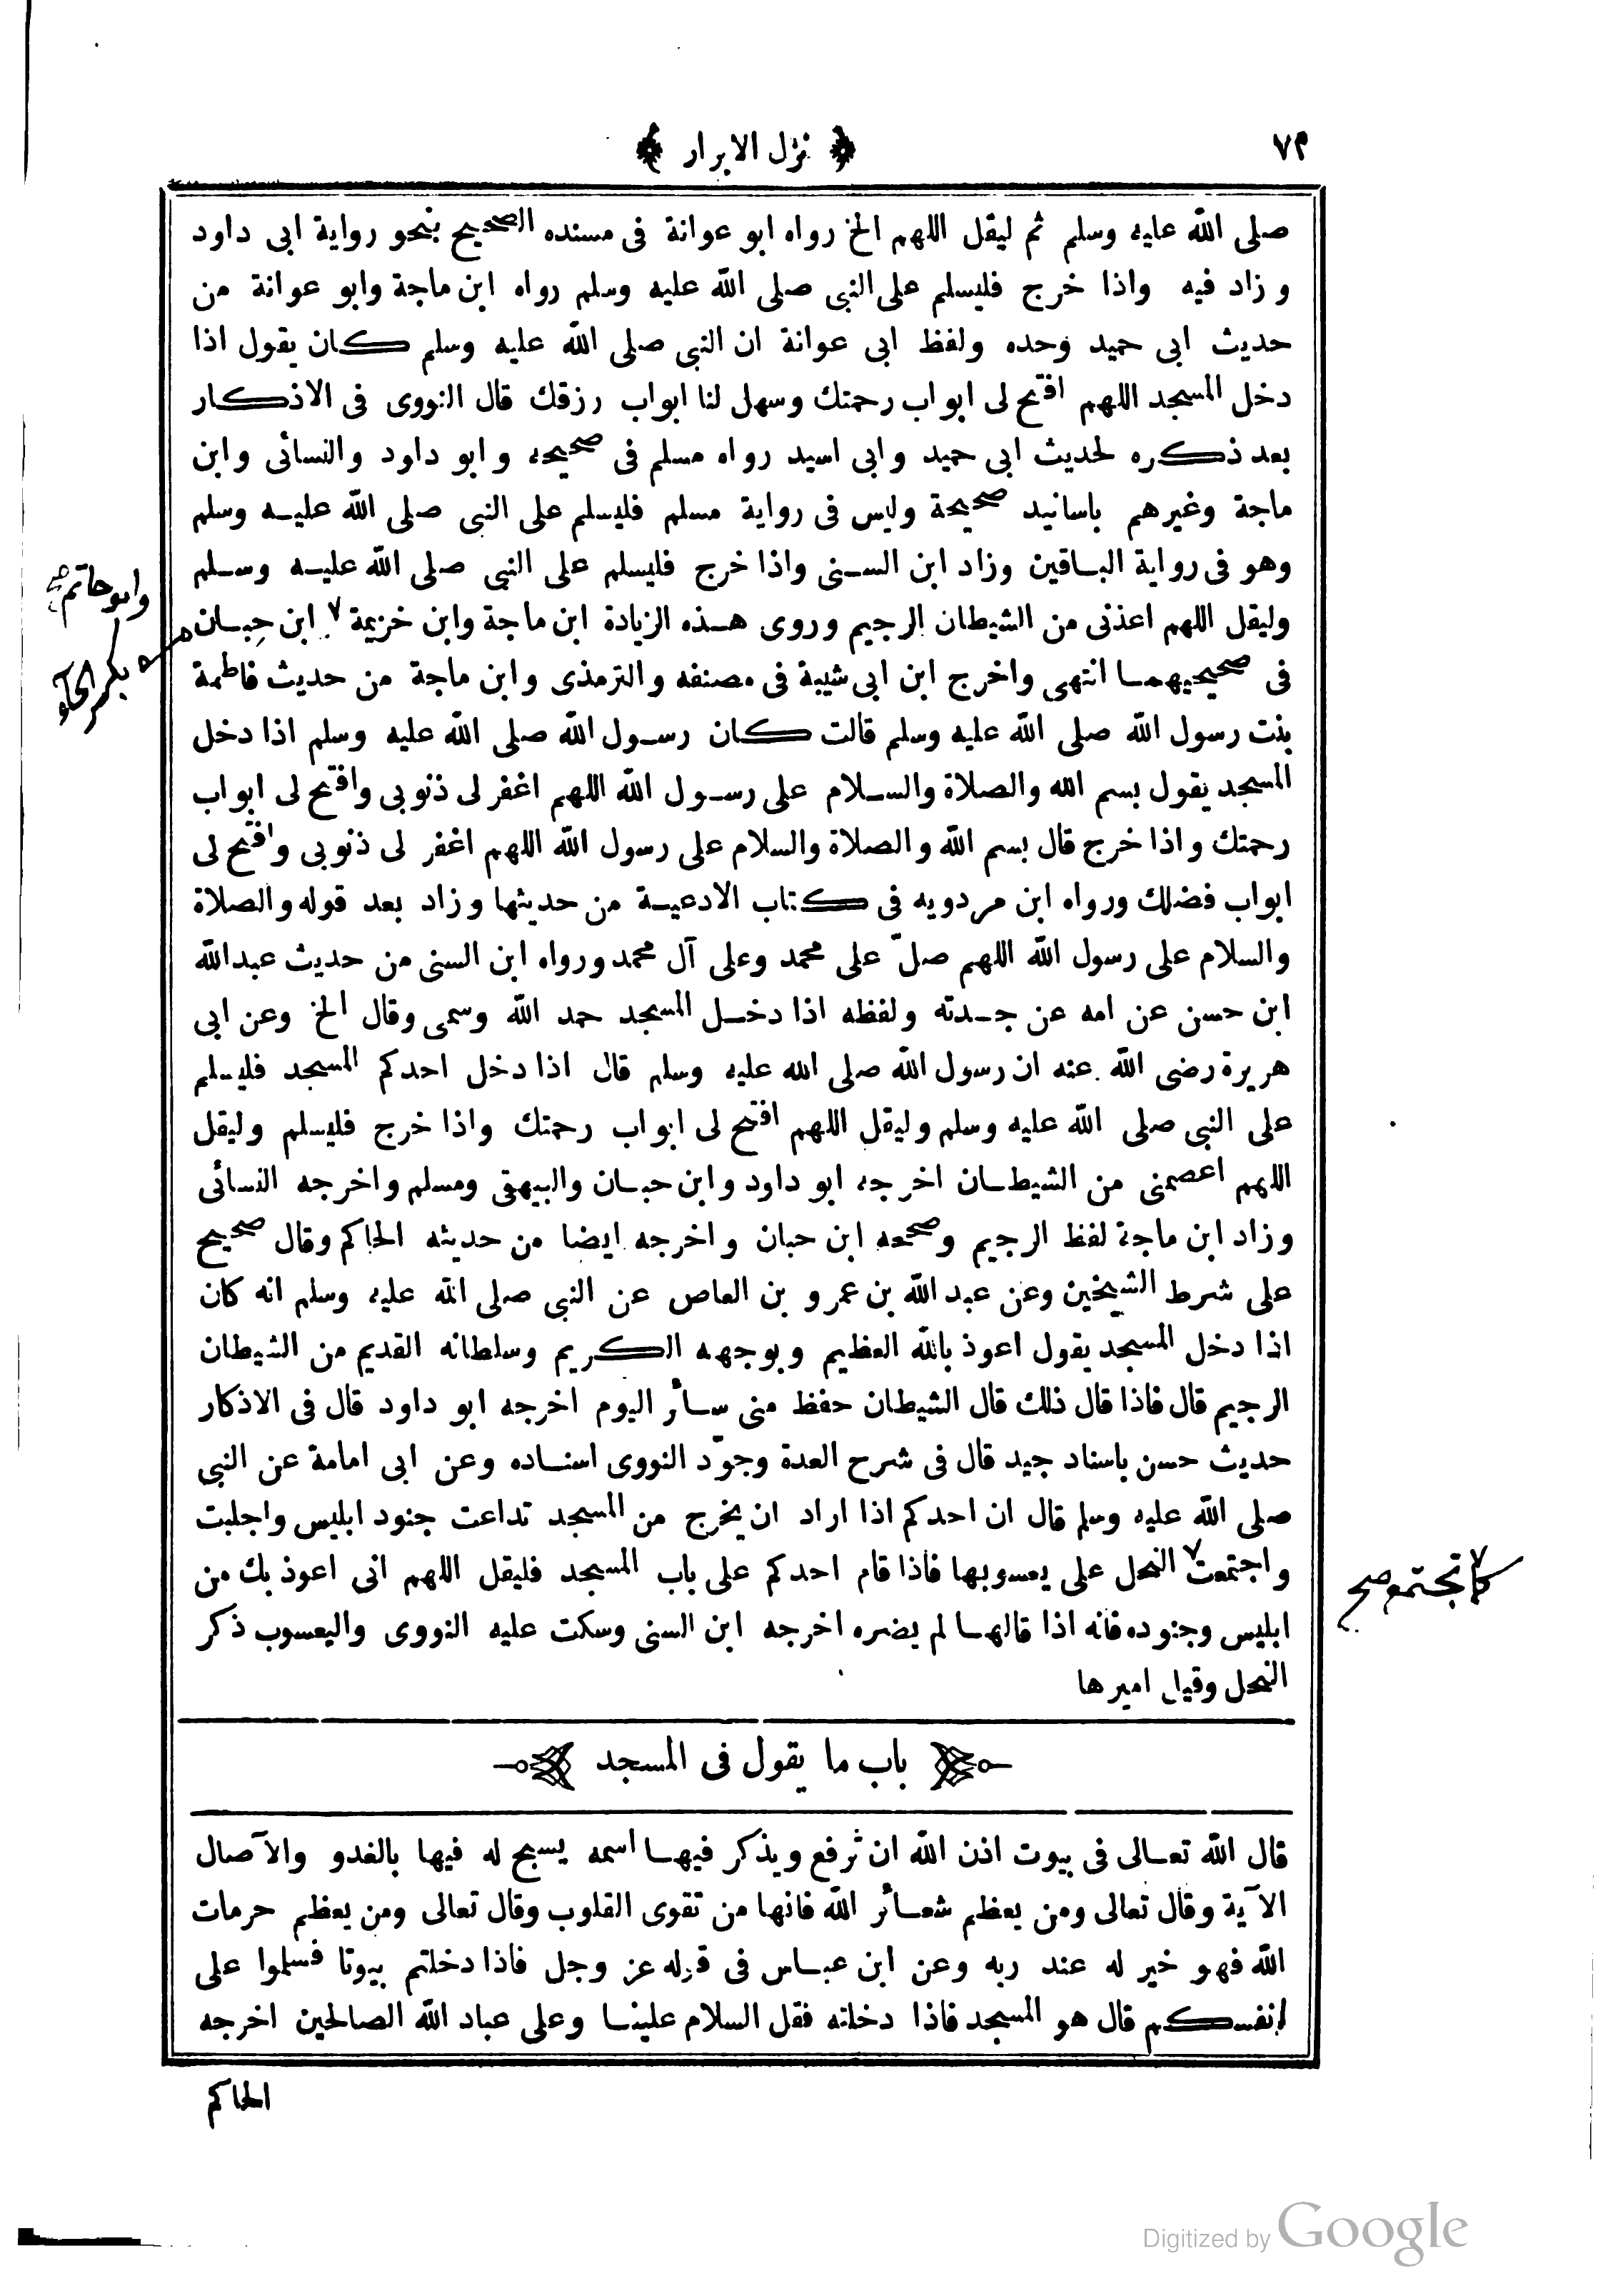 ٧٢
﴿ نزل الابرار ﴾
صلى الله عليه وسلم ثم ليقل اللهم الخ رواه ابو عوانة فى مسنده الصحيح بنحو رواية ابى داود
وزاد فيه واذا خرج فليسلم على النبى صلى الله عليه وسلم رواه ابن ماجة وابو عوانة من
حديث ابى حميد وحده ولفظ ابى عوانة ان النبى صلى الله عليه وسلم كان يقول اذا
دخل المسجد اللهم افتح لى ابواب رحمتك وسهل لنا ابواب رزقك قال النووى فى الاذكار
بعد ذكره لحديث ابى حميد وابى اسيد رواه مسلم فى صحيحه وابو داود والنسائى وابن
ماجة وغيرهم باسانيد صحيحة وليس فى رواية مسلم فليسلم على النبى صلى الله عليه وسلم
وهو فى رواية الباقين وزاد ابن السنى واذا خرج فليسلم على النبى صلى الله عليه وسلم
وليقل اللهم اعذنى من الشيطان الرجيم وروى هذه الزيادة ابن ماجة وابن خزيمة ٧ ابن حِبان
وابو حاتم صح
بكسر الحاء
فى صحيحيهما انتهى واخرج ابن ابى شيبة فى مصنفه والترمذى وابن ماجة من حديث فاطمة
بنت رسول الله صلى الله عليه وسلم قالت كان رسول الله صلى الله عليه وسلم اذا دخل
المسجد يقول بسم الله والصلاة والسلام على رسول الله اللهم اغفر لى ذنوبى وافتح لى ابواب
رحمتك واذا خرج قال بسم الله والصلاة والسلام على رسول الله اللهم اغفر لى ذنوبى وافتح لى
ابواب فضلك ورواه ابن مردويه فى كتاب الادعية من حديثها وزاد بعد قوله والصلاة
والسلام على رسول الله اللهم صلّ على محمد وعلى آل محمد ورواه ابن السنى من حديث عبدالله
ابن حسن عن امه عن جدته ولفظه اذا دخل المسجد حمد الله وسمى وقال الخ وعن ابى
هريرة رضى الله عنه ان رسول الله صلى الله عليه وسلم قال اذا دخل احدكم المسجد فليسلم
على النبى صلى الله عليه وسلم وليقل اللهم افتح لى ابواب رحمتك واذا خرج فليسلم وليقل
اللهم اعصمنى من الشيطان اخرجه ابو داود وابن حبان والبيهقى ومسلم واخرجه النسائى
وزاد ابن ماجة لفظ الرجيم وصححه ابن حبان واخرجه ايضا من حديثه الحاكم وقال صحيح
على شرط الشيخين وعن عبد الله بن عمرو بن العاص عن النبى صلى الله عليه وسلم انه كان
اذا دخل المسجد يقول اعوذ بالله العظيم وبوجهه الكريم وسلطانه القديم من الشيطان
الرجيم قال فاذا قال ذلك قال الشيطان حفظ منى سائر اليوم اخرجه ابو داود قال فى الاذكار
حديث حسن باسناد جيد قال فى شرح العدة وجوّد النووى اسناده وعن ابى امامة عن النبى
صلى الله عليه وسلم قال ان احدكم اذا اراد ان يخرج من المسجد تداعت جنود ابليس واجلبت
واجتمعت ٧ النحل على يعسوبها فاذا قام احدكم على باب المسجد فليقل اللهم انى اعوذ بك من
٧ كما تجتمع صح
ابليس وجنوده فانه اذا قالها لم يضره اخرجه ابن السنى وسكت عليه النووى واليعسوب ذكر
النحل وقيل اميرها
باب ما يقول فى المسجد
قال الله تعالى فى بيوت اذن الله ان ترفع ويذكر فيها اسمه يسبح له فيها بالغدو والآصال
الآية وقال تعالى ومن يعظم شعائر الله فانها من تقوى القلوب وقال تعالى ومن يعظم حرمات
الله فهو خير له عند ربه وعن ابن عباس فى قوله عز وجل فاذا دخلتم بيوتا فسلموا على
انفسكم قال هو المسجد فاذا دخلته فقل السلام علينا وعلى عباد الله الصالحين اخرجه
الحاكم
Digitized by Google